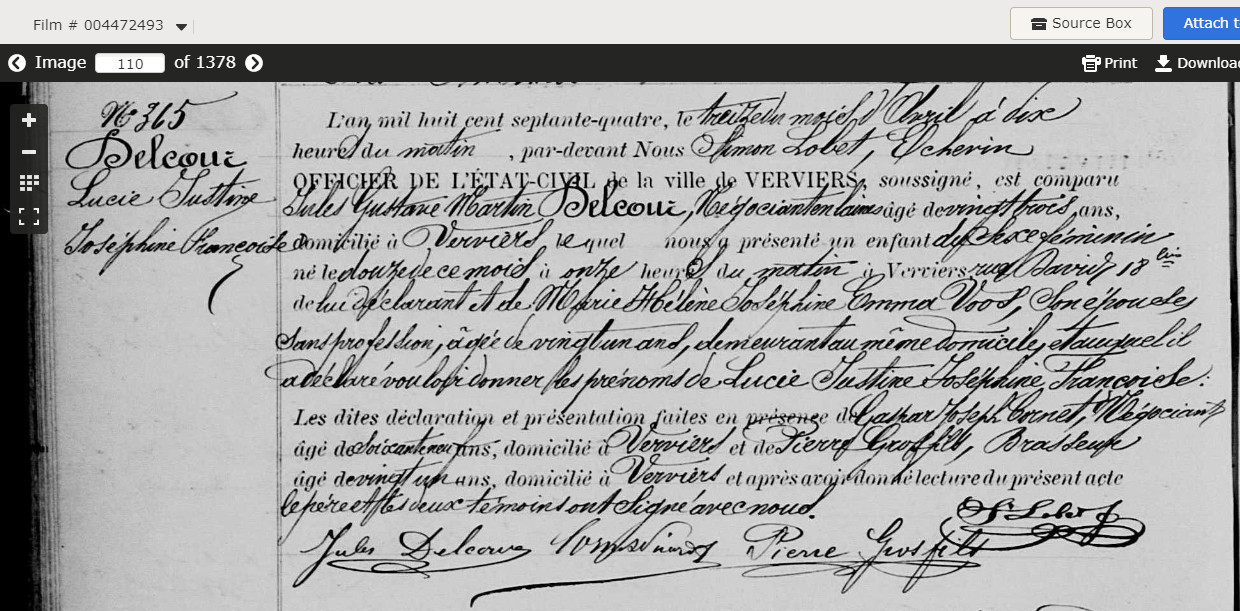 Film # 004472493
Source Box
Attach t
Image 110 of 1378
Print
Downloa
Nº 365
Delcour
Lucie Justine
Joséphine Françoise
L'an mil huit cent septante-quatre, le treize du mois d'Avril à dix
heures du matin , par-devant Nous Simon Lobet, Echevin
OFFICIER DE L'ÉTAT-CIVIL de la ville de VERVIERS, soussigné, est comparu
Jules Gustave Martin Delcour, Négociant en laines âgé de vingt trois ans,
domicilié à Verviers, lequel nous a présenté un enfant du sexe féminin
né le douze de ce mois à onze heures du matin à Verviers, rue David, 18 bis
de lui déclarant et de Marie Hélène Joséphine Emma Voos, son épouse,
sans profession, âgée de vingt un ans, demeurant au même domicile, et auquel il
a déclaré vouloir donner les prénoms de Lucie Justine Joséphine Françoise.
Les dites déclaration et présentation faites en présence de Gaspar Joseph Cornet, Négociant
âgé de soixante neuf ans, domicilié à Verviers et de Pierre Grosfils, Brasseur
âgé de vingt un ans, domicilié à Verviers et après avoir donné lecture du présent acte
le père et les deux témoins ont signé avec nous.
S. Lobet
Jules Delcour
Pierre Grosfils